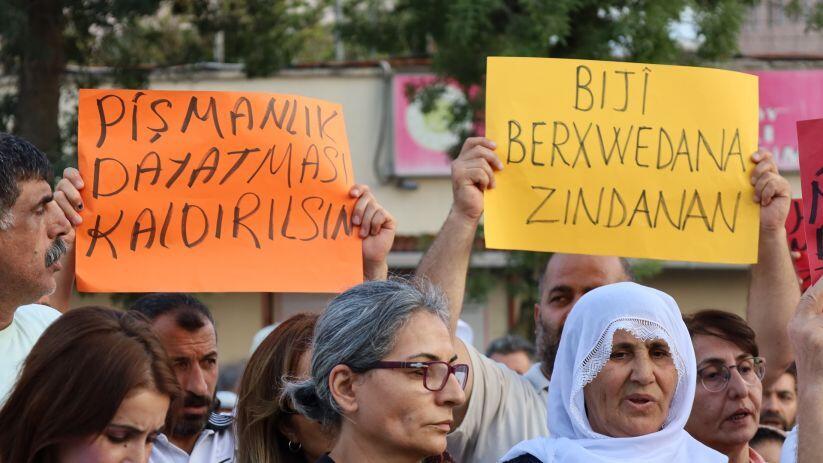 PİŞMANLIK
DAYATMASI
KALDIRILSIN
BIJÎ
BERXWEDANA
ZINDANAN